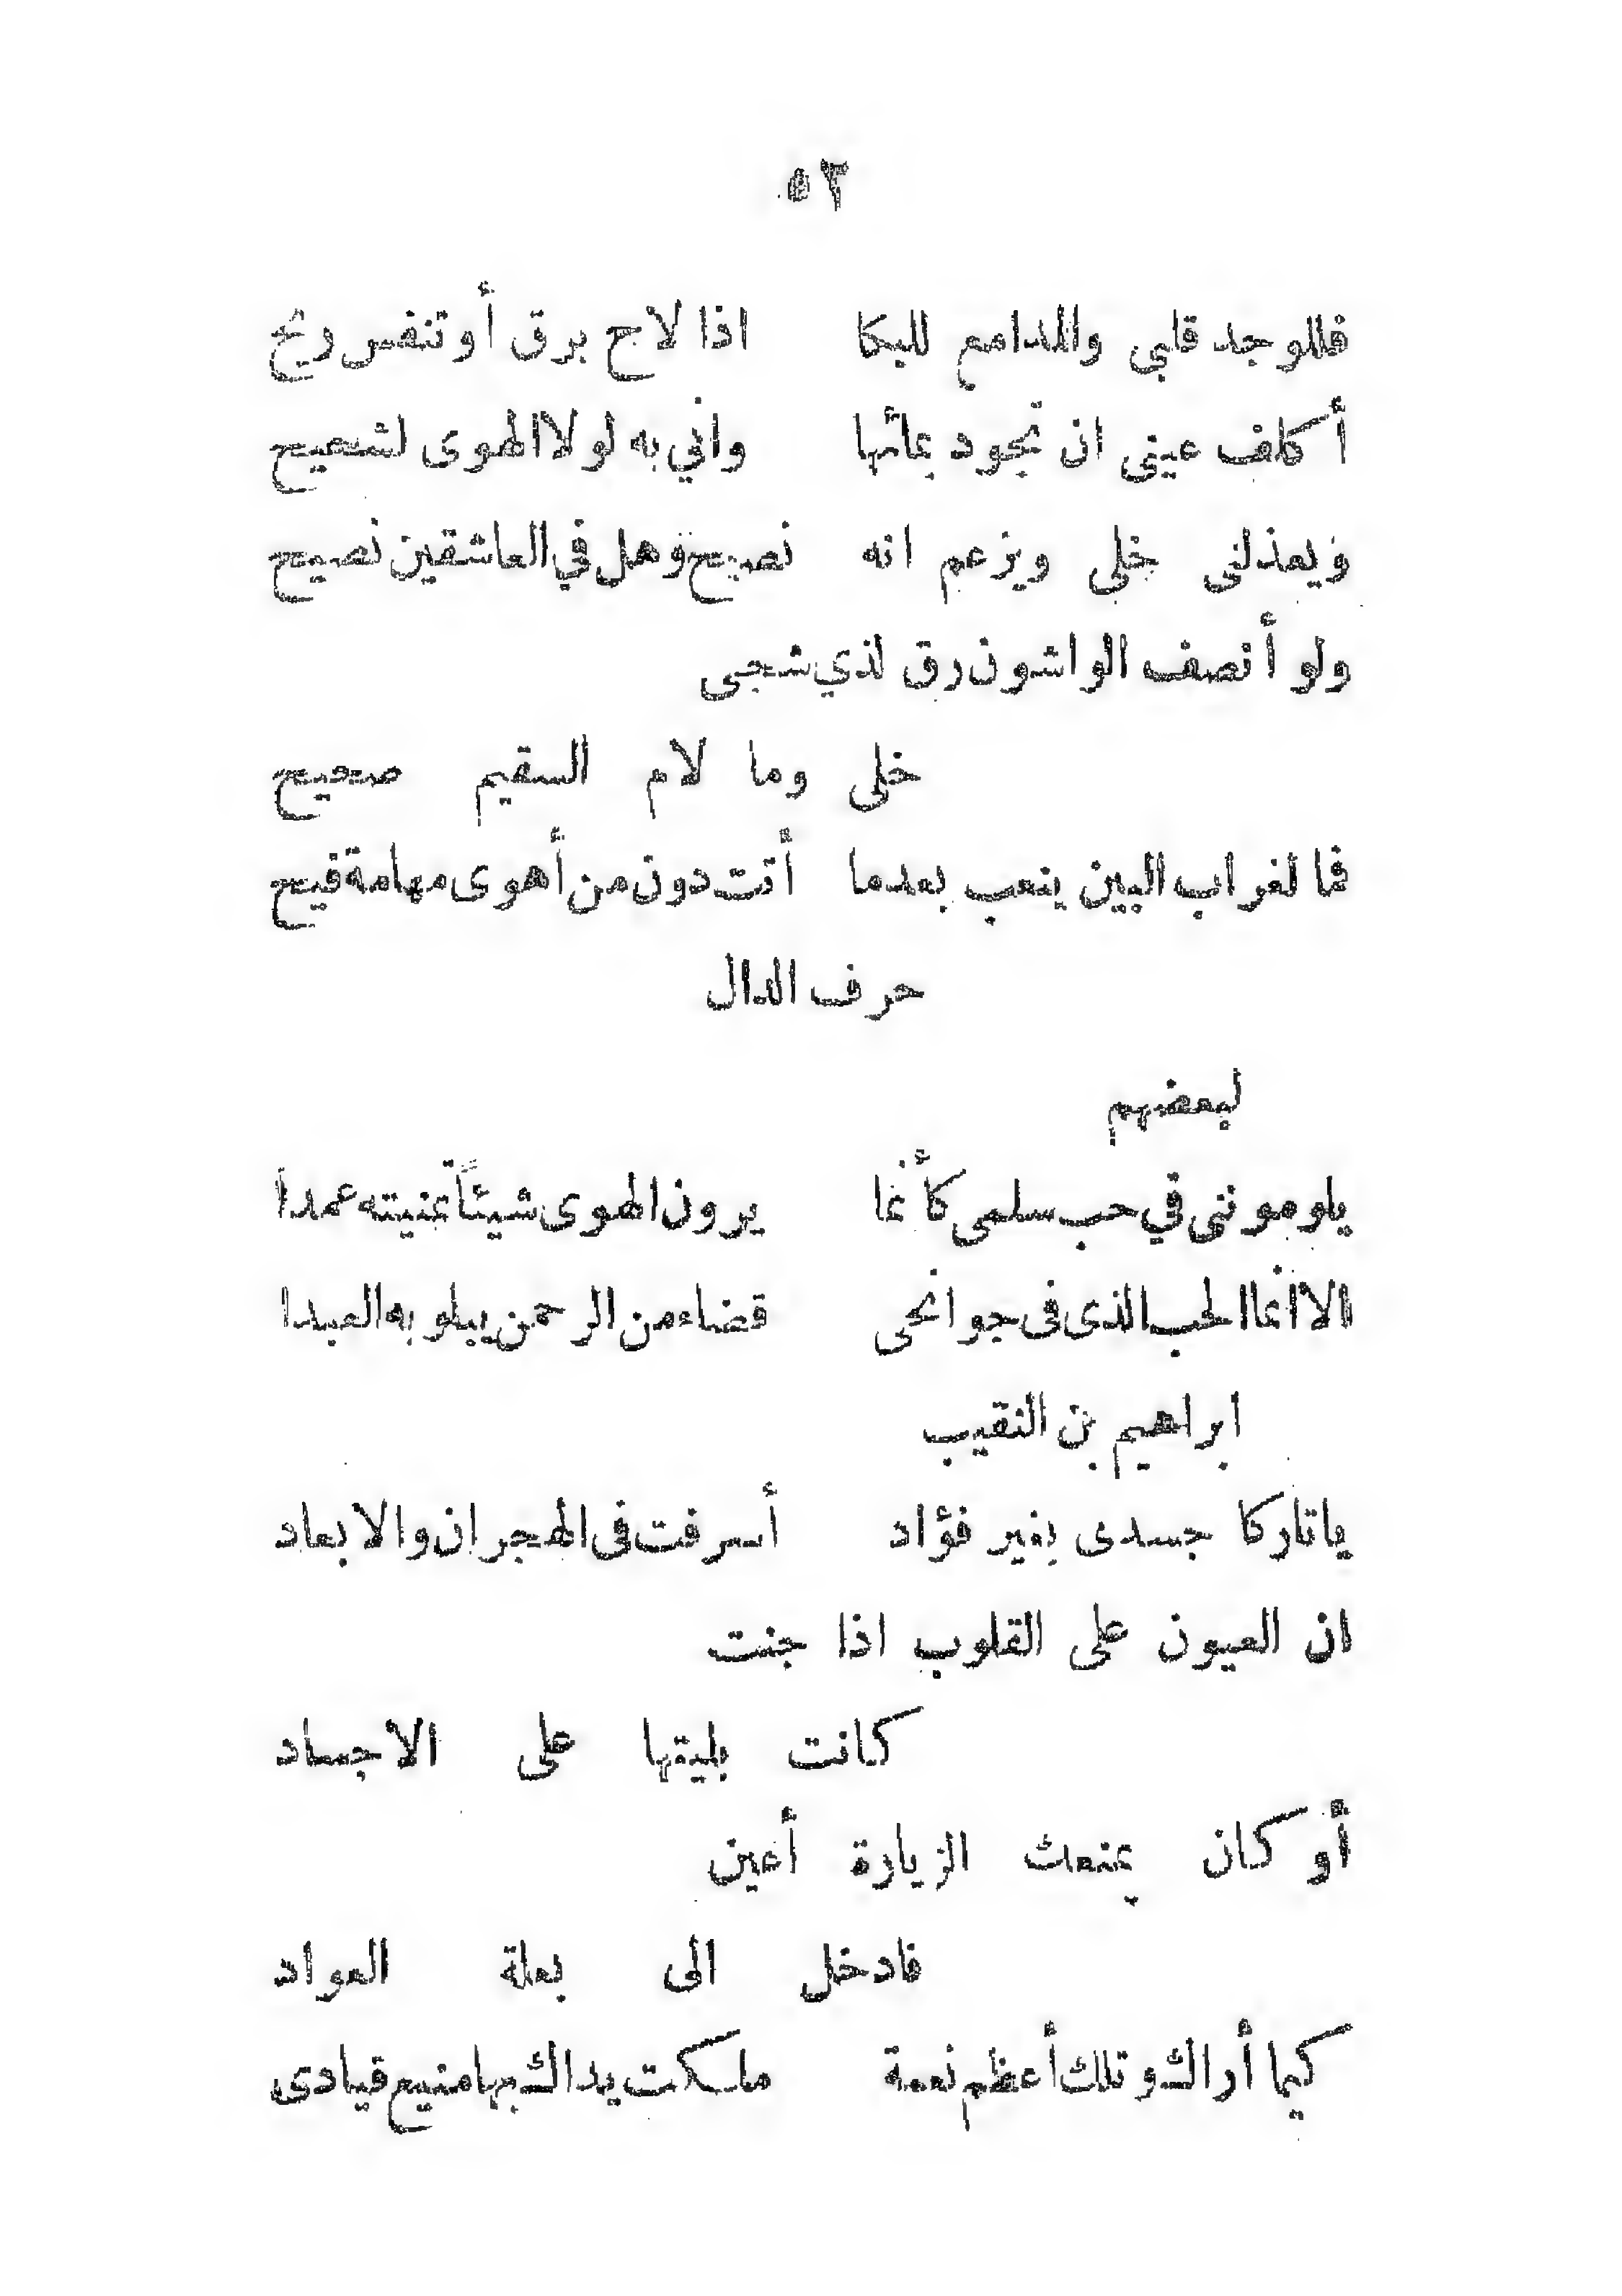 ٥٣
فللوجد قلبى والمدامع للبكا اذا لاح برق أو تنفس ريح
أكلف عينى ان تجود بمائها واني به لولا الهوى لشحيح
ويعذلنى خلى ويزعم انه نصيح وهل في العاشقين نصيح
ولو أنصف الواشون رق لذي شجى
خلى وما لام السقيم صحيح
فما لغراب البين ينعب بعدما أتت دون من أهوى مهامة فيح
حرف الدال
لبعضهم
يلوموننى في حب سلمى كأنما يرون الهوى شيئاً تمنيته عمدا
الا انما الحب الذى فى جوانحى قضاء من الرحمن يبلو به العبدا
ابراهيم بن النقيب
يا تاركا جسدى بغير فؤاد أسرفت فى الهجران والابعاد
ان العيون على القلوب اذا جنت
كانت بليتها على الاجساد
أو كان يمنعك الزيارة أعين
فادخل الى بعلة العواد
كيما أراك وتلك أعظم نعمة ملكت يداك بها منيع قيادى